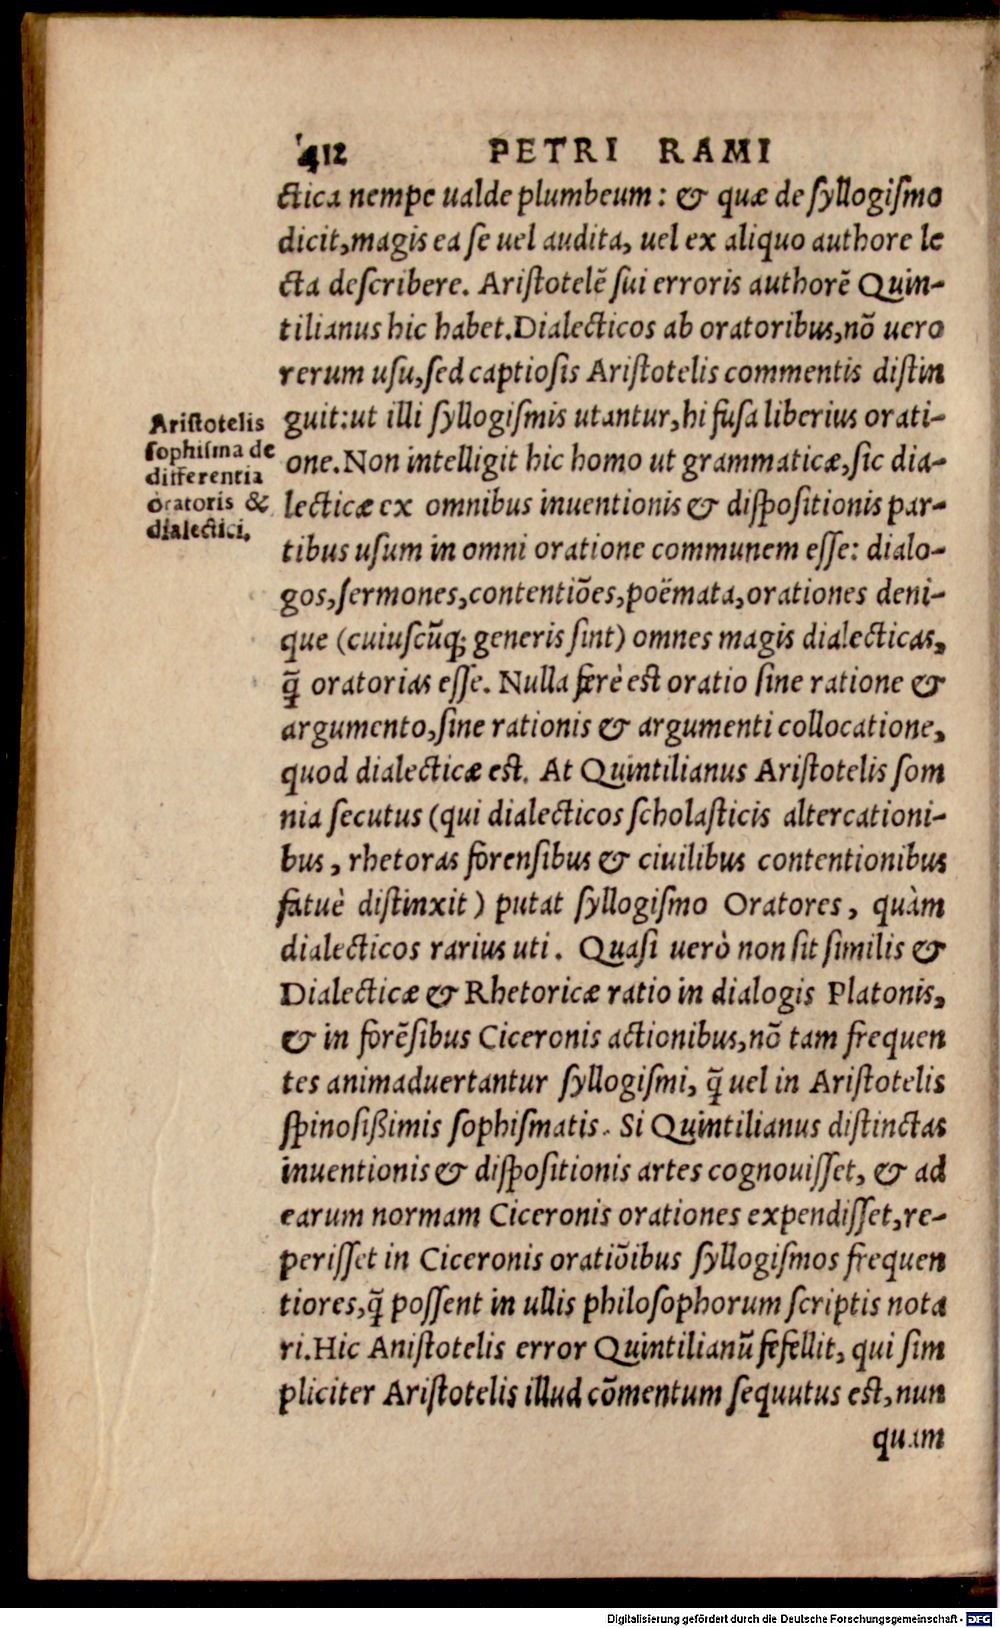 412 PETRI RAMI
ctica nempe ualde plumbeum: & quæ de syllogismo
dicit, magis ea se uel audita, uel ex aliquo authore le
cta describere. Aristotelē sui erroris authorē Quin-
tilianus hic habet. Dialecticos ab oratoribus, nō uero
rerum usu, sed captiosis Aristotelis commentis distin
guit: ut illi syllogismis utantur, hi fusa liberius orati-
one. Non intelligit hic homo ut grammaticæ, sic dia-
lecticæ ex omnibus inuentionis & dispositionis par-
tibus usum in omni oratione communem esse: dialo-
gos, sermones, contentiōes, poëmata, orationes deni-
que (cuiuscūq; generis sint) omnes magis dialecticas,
q̄ oratorias esse. Nulla ferè est oratio sine ratione &
argumento, sine rationis & argumenti collocatione,
quod dialecticæ est. At Quintilianus Aristotelis som
nia secutus (qui dialecticos scholasticis altercationi-
bus, rhetoras forensibus & ciuilibus contentionibus
fatuè distinxit) putat syllogismo Oratores, quàm
dialecticos rarius uti. Quasi uerò non sit similis &
Dialecticæ & Rhetoricæ ratio in dialogis Platonis,
& in forēsibus Ciceronis actionibus, nō tam frequen
tes animaduertantur syllogismi, q̄ uel in Aristotelis
spinosißimis sophismatis. Si Quintilianus distinctas
inuentionis & dispositionis artes cognouisset, & ad
earum normam Ciceronis orationes expendisset, re-
perisset in Ciceronis oratiōibus syllogismos frequen
tiores, q̄ possent in ullis philosophorum scriptis nota
ri. Hic Anistotelis error Quintilianū fefellit, qui sim
pliciter Aristotelis illud cōmentum sequutus est, nun
quam
Aristotelis
sophisma de
differentia
oratoris &
dialectici.
Digitalisierung gefördert durch die Deutsche Forschungsgemeinschaft - DFG